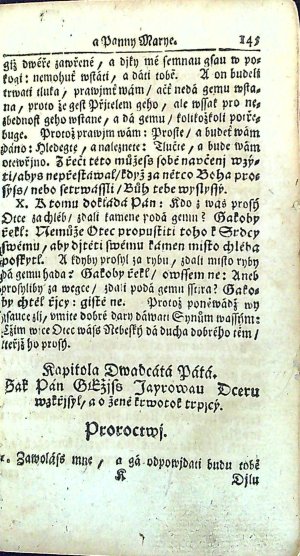 a Panny Marye. 145
giž dwéře zawřené, a djky mé semnau gsau w po-
kogi: nemohuť wstáti, a dáti tobě. A on budeli
trwati tluka, prawjmť wám/ ačť nedá gemu wsta-
na, proto že gest Přjtelem geho, ale wssak pro ne-
zbednost geho wstane, a dá gemu/ kolikožkoli potře-
buge. Protož prawjm wám: Proste/ a budeť wám
dáno: Hledegte, a naleznete: Tlučte, a bude wám
otewřjno. Z řeči této můžess sobě naučenj wzý-
ti/abys nepřestáwal/když za něčo Boha pro-
sýss/nebo setrwássli/Bůh tebe wyslyssý.
X. K tomu dokládá Pán: Kdo z wás prosý
Otce za chléb/ zdali kamene podá gemu? Gakoby
řekl: Nemůže Otec propustiti toho k Srdcy
swému/aby djtěti swému kámen mjsto chléba
poskytl. A kdyby prosyl za rybu/ zdali mjsto ryby
dá gemu hada? Gakoby řekl/ owssem ne: Aneb
prosyliby za wegce/ zdali podá gemu sstjra? Gako-
by chtěl řjcy: gistě ne. Protož poněwádž wy
gsauce zlj/ vmjte dobré dary dáwati Synům wassým:
čjm wjce Otec wáss Nebeský dá ducha dobrého těm/
kteřjž ho prosý.
Kapitola Dwadcátá Pátá.
Gak Pán GEžjss Jayrowau Dceru
wzkřjsyl, a o ženě krwotok trpjcý.
Proroctwj.
Zawoláss mne, a gá odpowjdati budu tobě
K Djlu